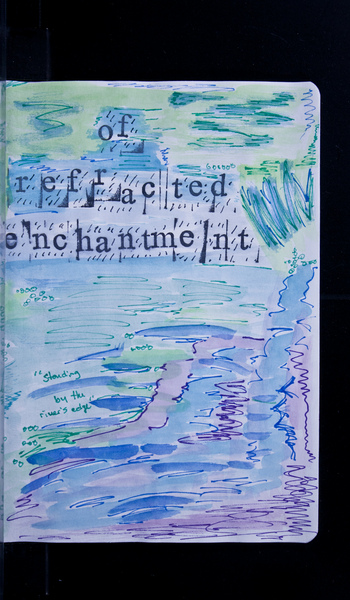 of
refracted
enchantment
"Standing
by the
river's edge"